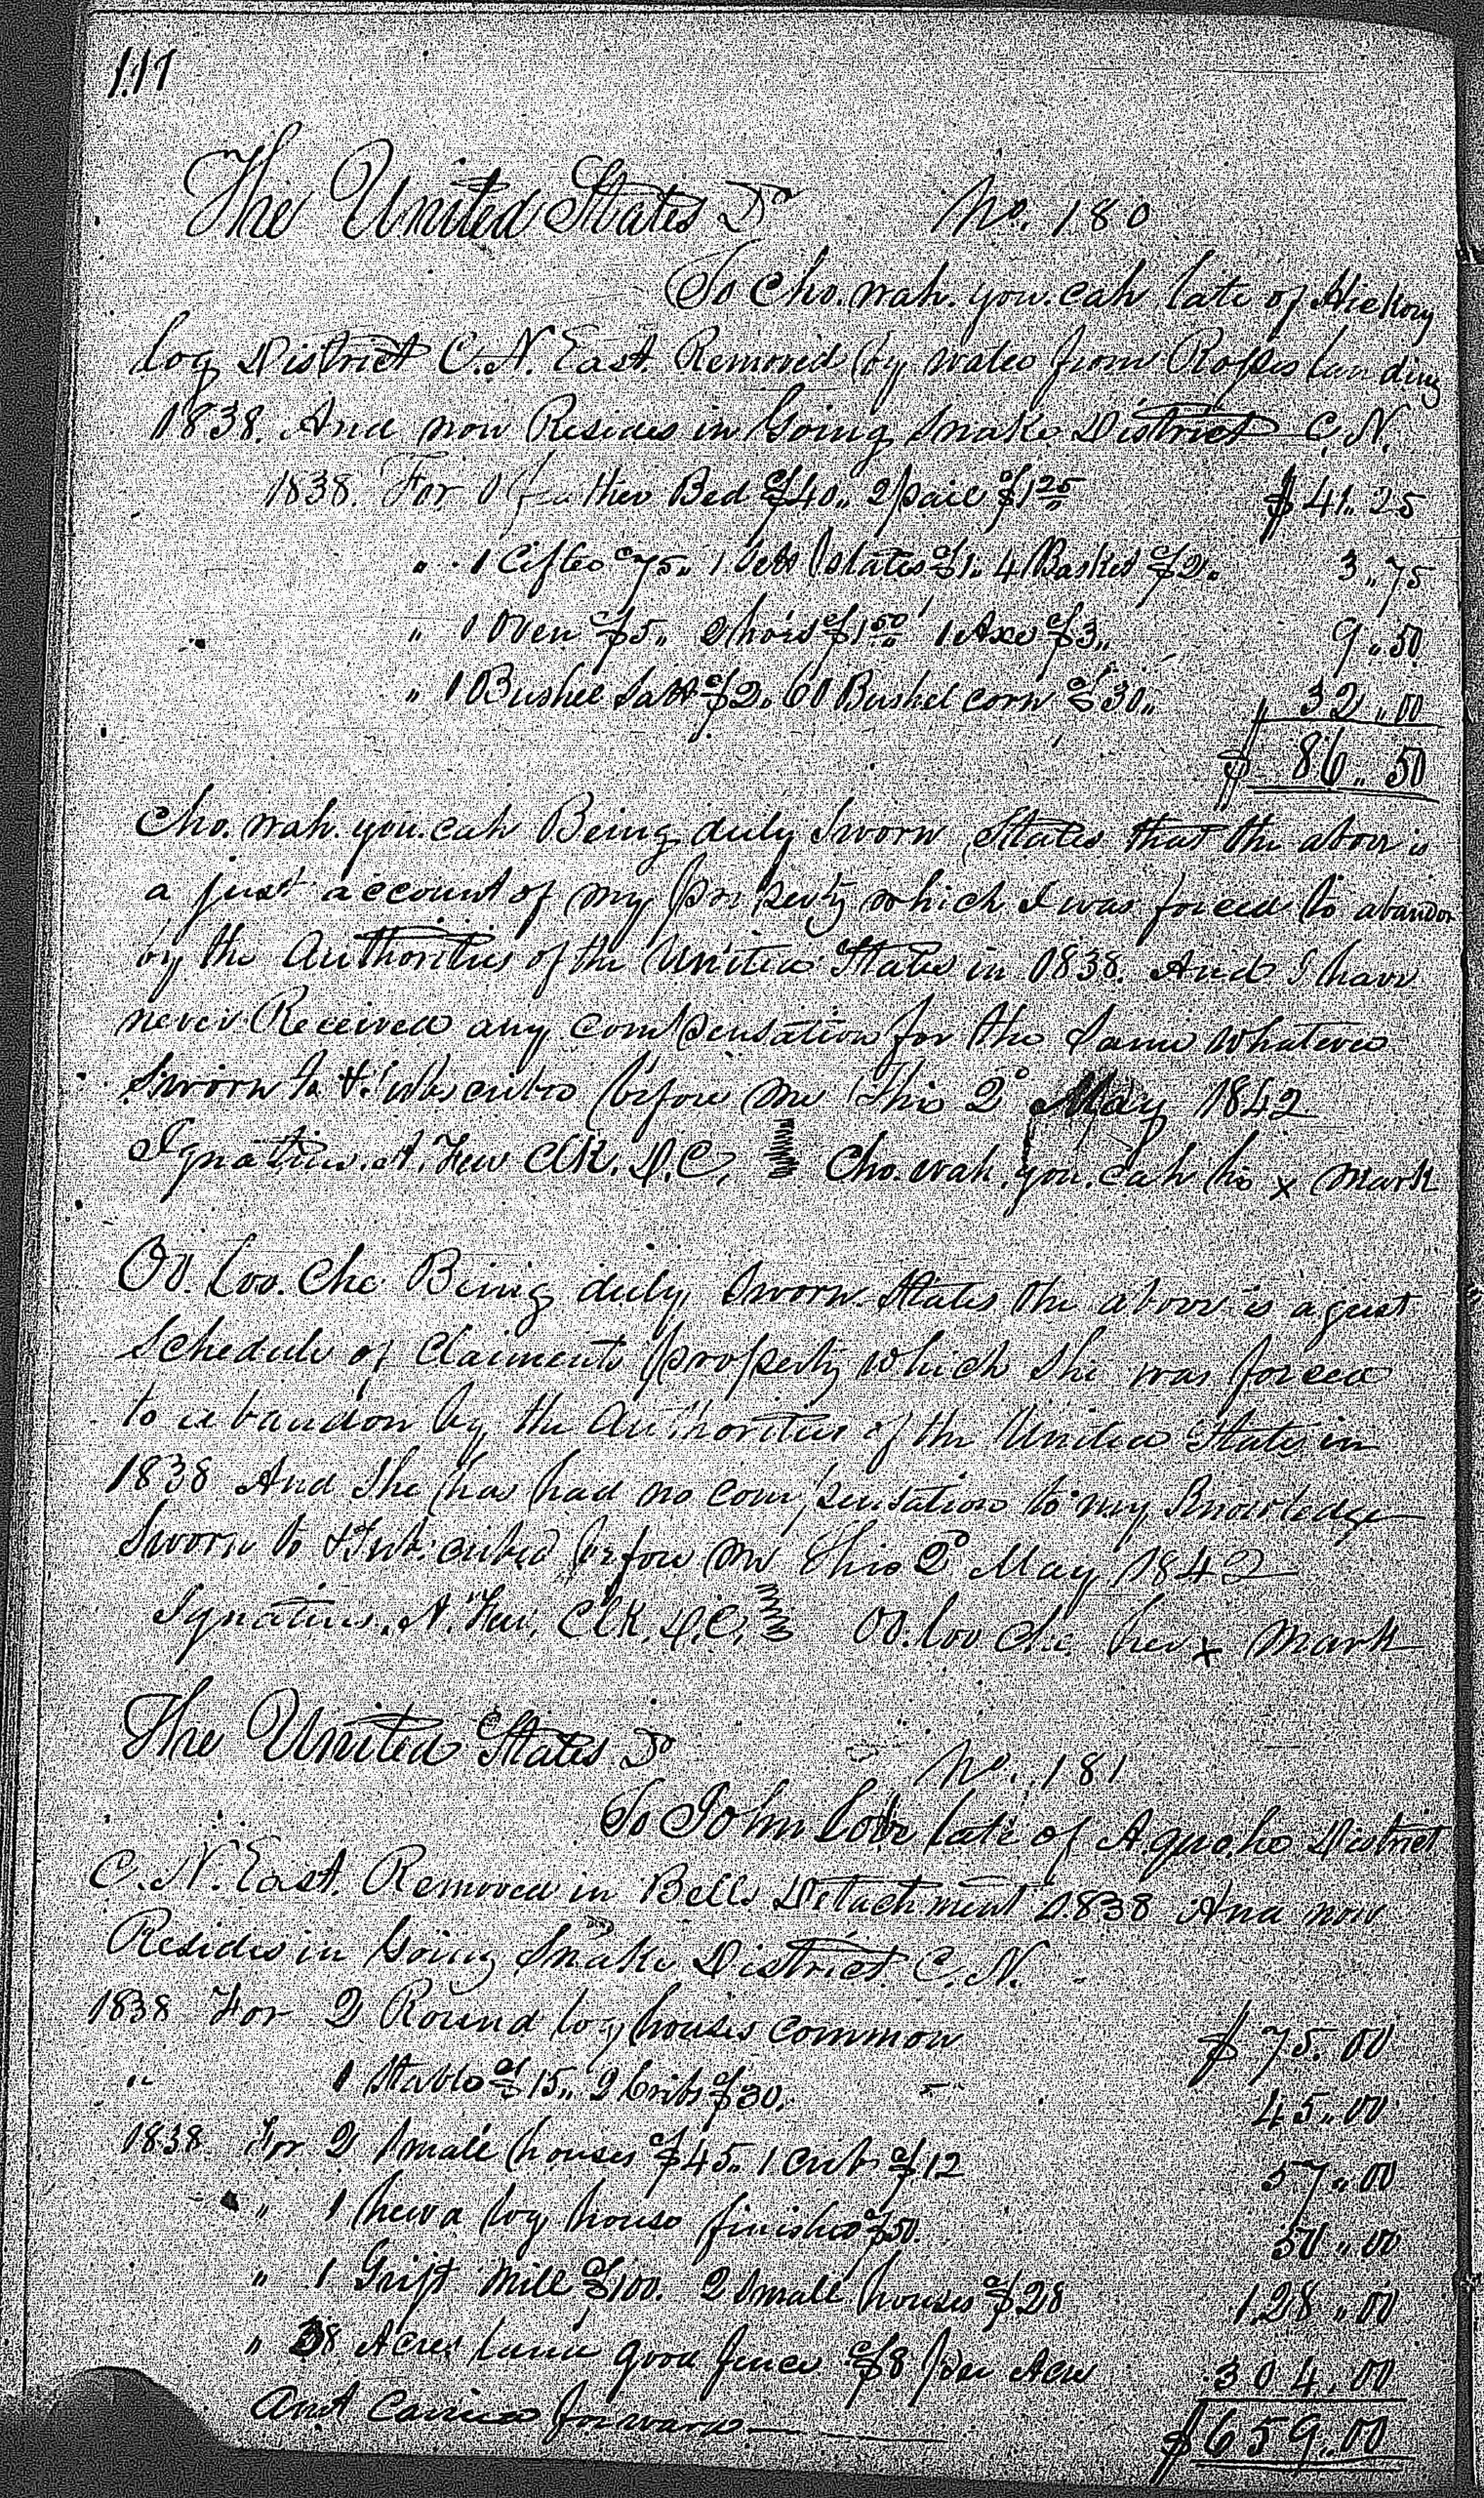 117
The United States Dr No. 180
To Cho.wah.you.cah late of Hickory
log District C.N. East. Removed by water from Rosses landing
1838. And now Resides in Going Snake District C.N.
1838. For 1 feather Bed @ $40.. 2 pail $1 25 $41..25
" 1 Cifter c75.. 1 Sett plates @ $1.. 4 Basket @ $2. 3..75
" 1 Oven @ $5.. 2 hoes @ $1 50 1 Axe @ $3.. 9..50
" 1 Bushel Salt @ $2. 60 Bushel corn @ $30.. 32..00
$ 86..50
Cho.wah.you.cah Being duly Sworn States that the above is
a just account of my property which I was forced to abandon
by the Authorities of the United States in 1838. And I have
never Received any compensation for the Same whatever
Sworn to & Subscribed before me This 2d May 1842
Ignatius. A. Few Clk. D.C. Cho.wah.you.cah his x mark
Oo.loo.che Being duly Sworn States the above is a just
Schedule of Claiments property which She was forced
to abandon by the Authorities of the United States in
1838 And She has had no compensation to my Knowledge
Sworn to & Subscribed before me This 2d May 1842
Ignatius. A. Few. Clk. D.C. Oo.loo che her x mark
The United States Dr No. 181
To John Love late of Aquohe District
C.N. East. Removed in Bells Detachment 1838 And now
Resides in Going Snake District C.N.
1838 For 2 Round log houses common $ 75.00
" 1 Stable @ $15.. 2 Cribs @ $30. 45..00
1838 For 2 Small houses @ $45.. 1 crib @ $12 57..00
" 1 hewd log house finished @ $50. 50..00
" 1 Grist Mill @ $100. 2 Small houses @ $28 128..00
" 38 Acres land good fence @ $8 per Acre 304.00
Amt Carried forward $659..00